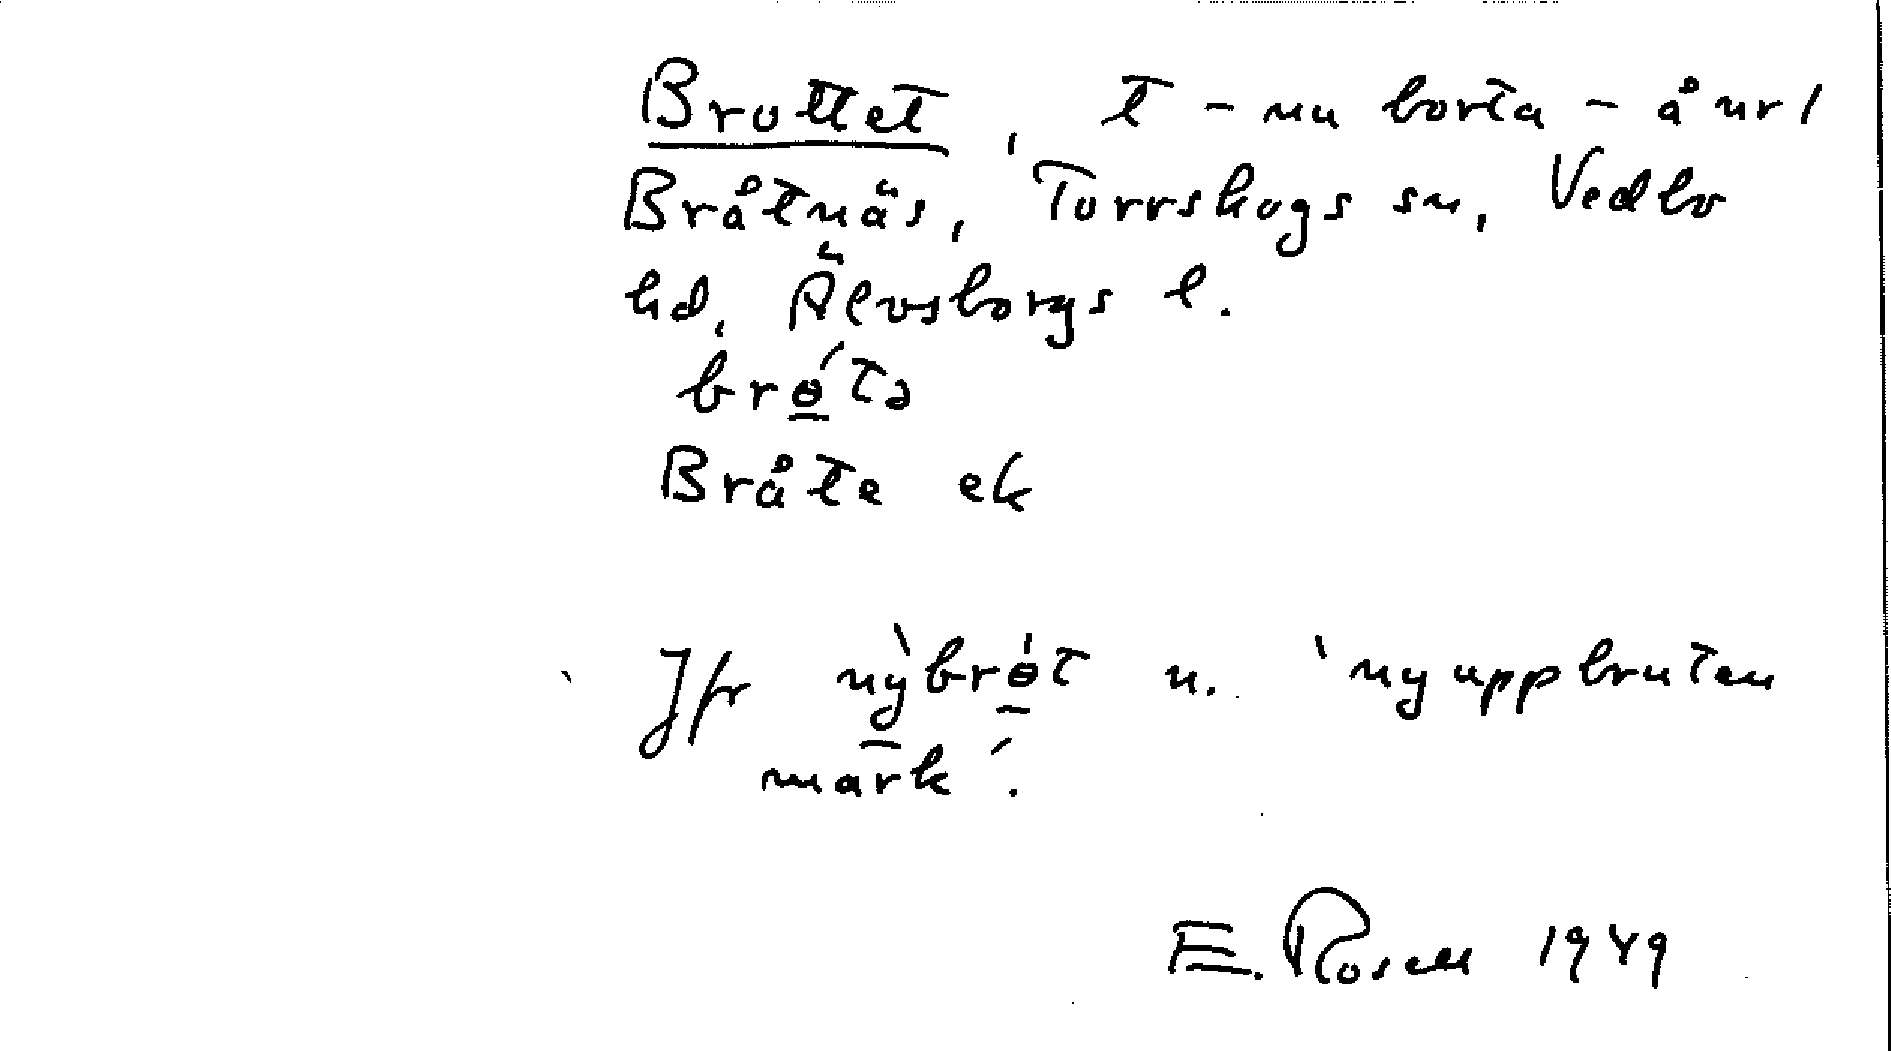 Bruttet, t - nu borta - å nr 1
Bråtnäs, Torrskogs sn, Vedbo
hd, Älvsborgs l.
brɵ́tə
Bråte ek
Jfr nỳbrɵ̀t n. 'nyuppbruten
mark'.
E. Rosell 1949